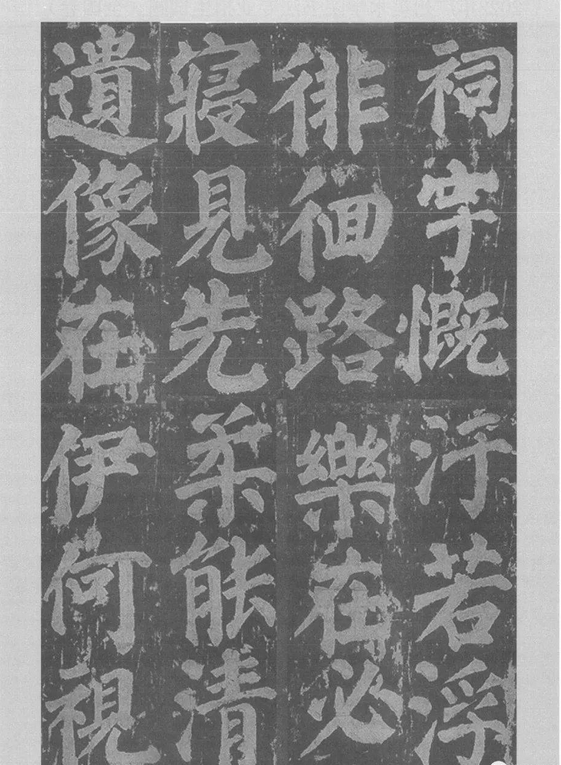 祠宇慨汙若浮
徘徊路樂在必
寢見先柔能清
遺像在伊何視